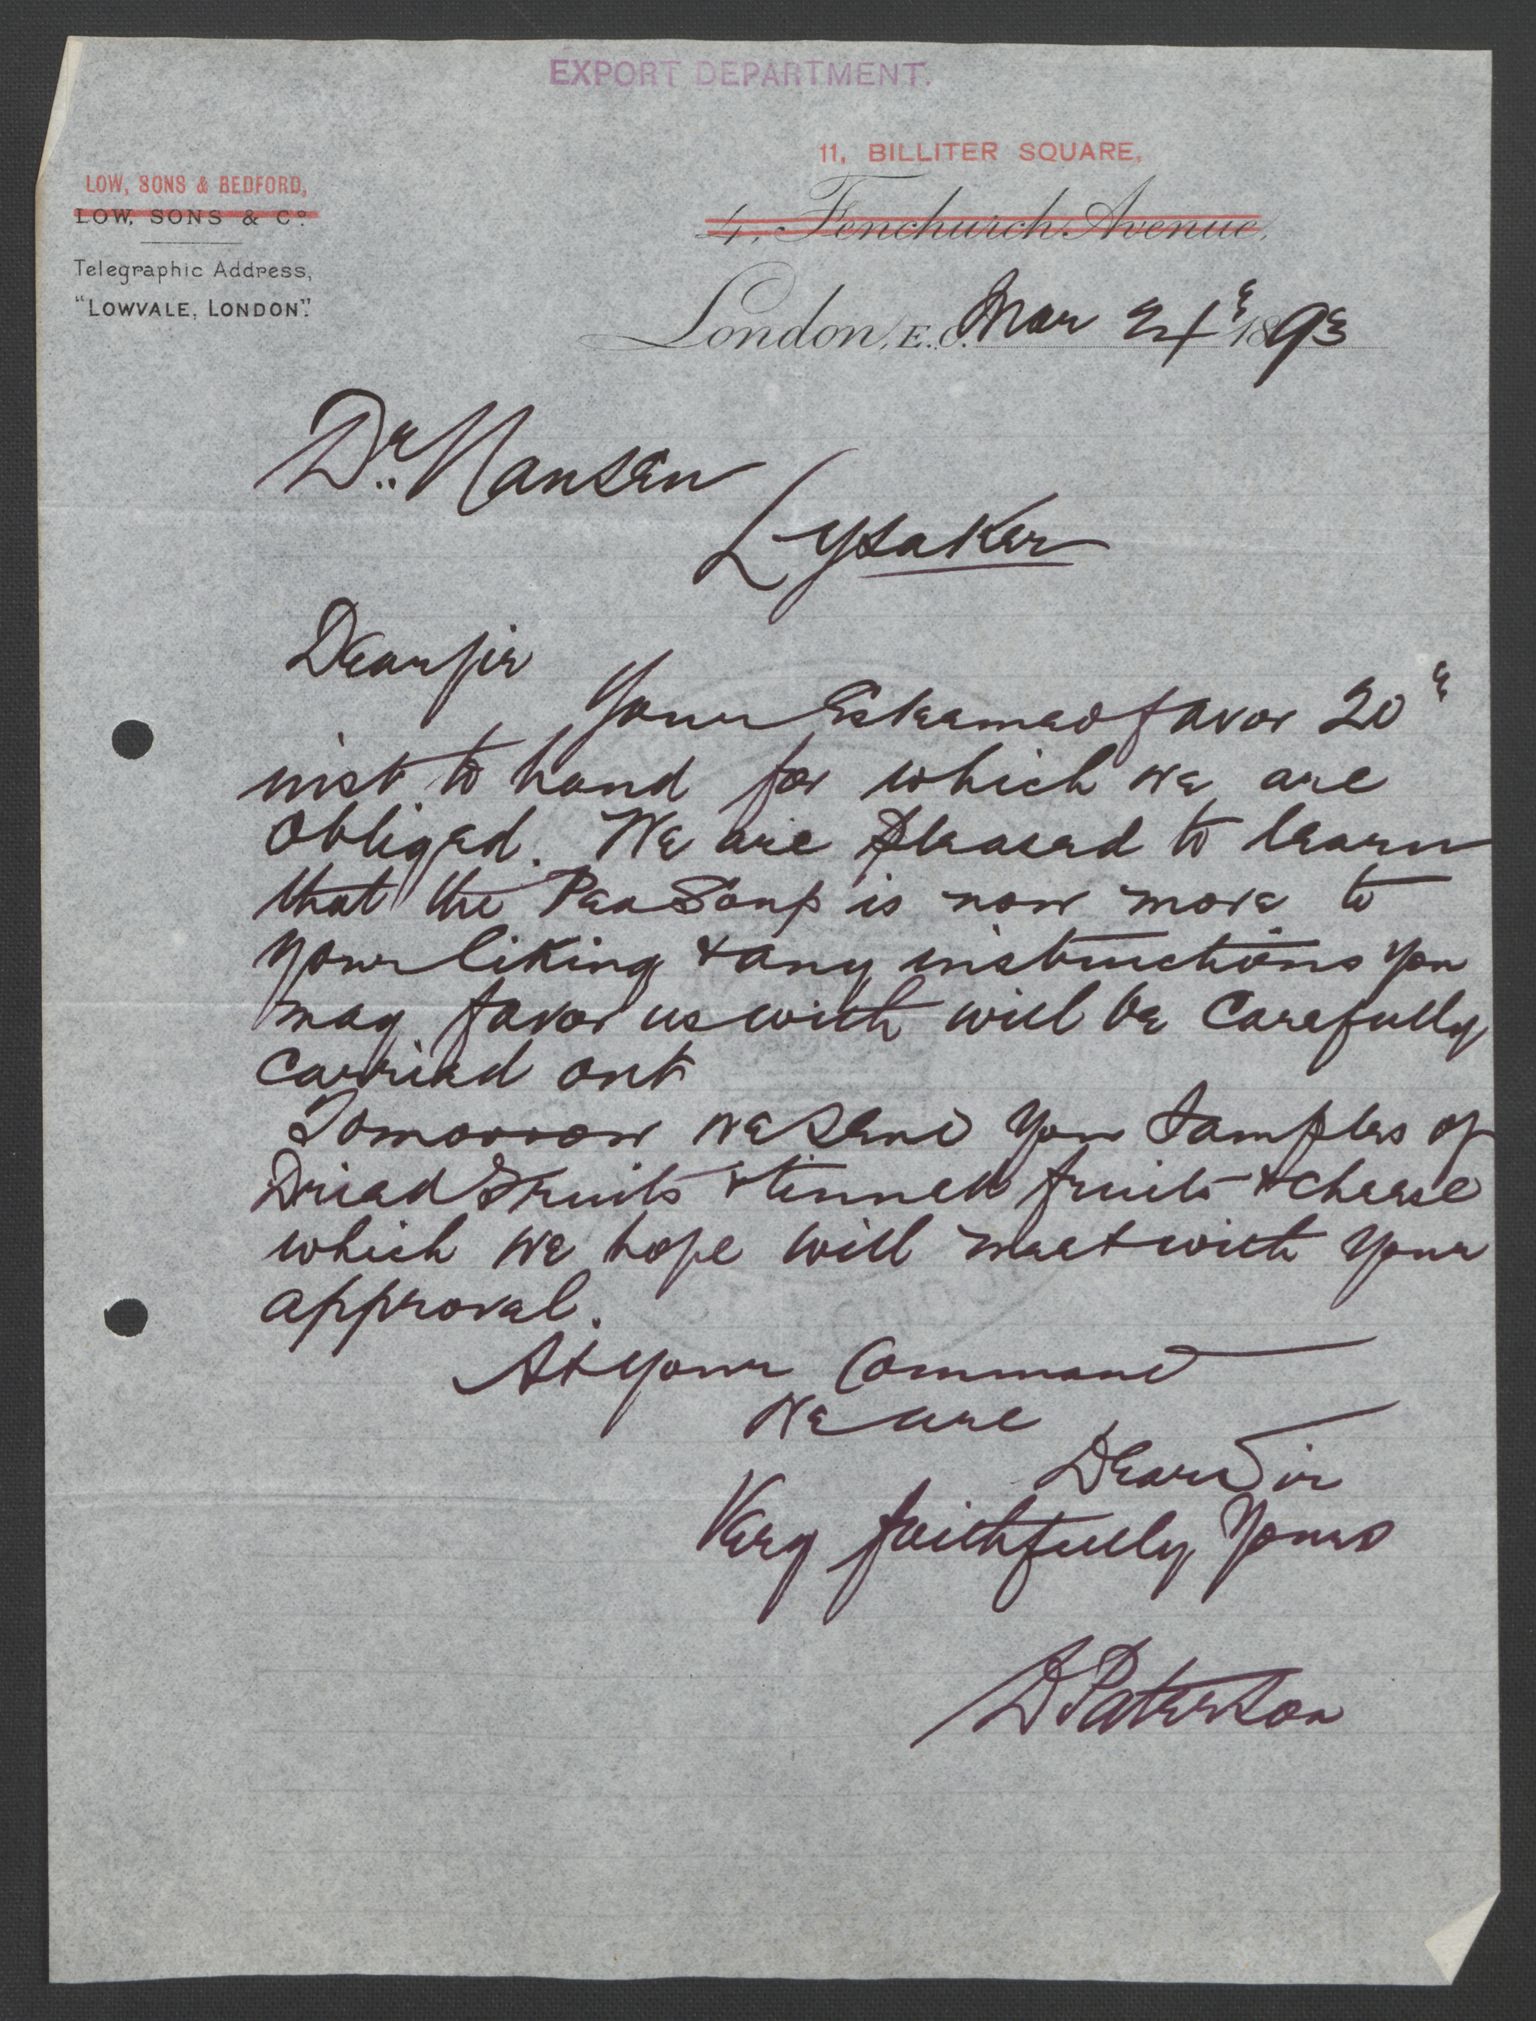 EXPORT DEPARTMENT.
11, BILLITER SQUARE,
LOW, SONS & BEDFORD,
LOW, SONS & Co.
4, Fenchurch Avenue,
Telegraphic Address,
"LOWVALE, LONDON".
London, E.C. Mar 24 1893
Dr. Nansen
Lysaker
Dear Sir
Your Esteemed favor 20
inst to hand for which we are
obliged. We are pleased to learn
that the Pea Soup is now more to
your liking & any instructions you
may favor us with will be Carefully
carried out
Tomorrow we send you Samples of
Dried Fruits & tinned fruits & cheese
which we hope will meet with your
approval.
At your Command
we are
Dear Sir
Very faithfully Yours
D Paterson